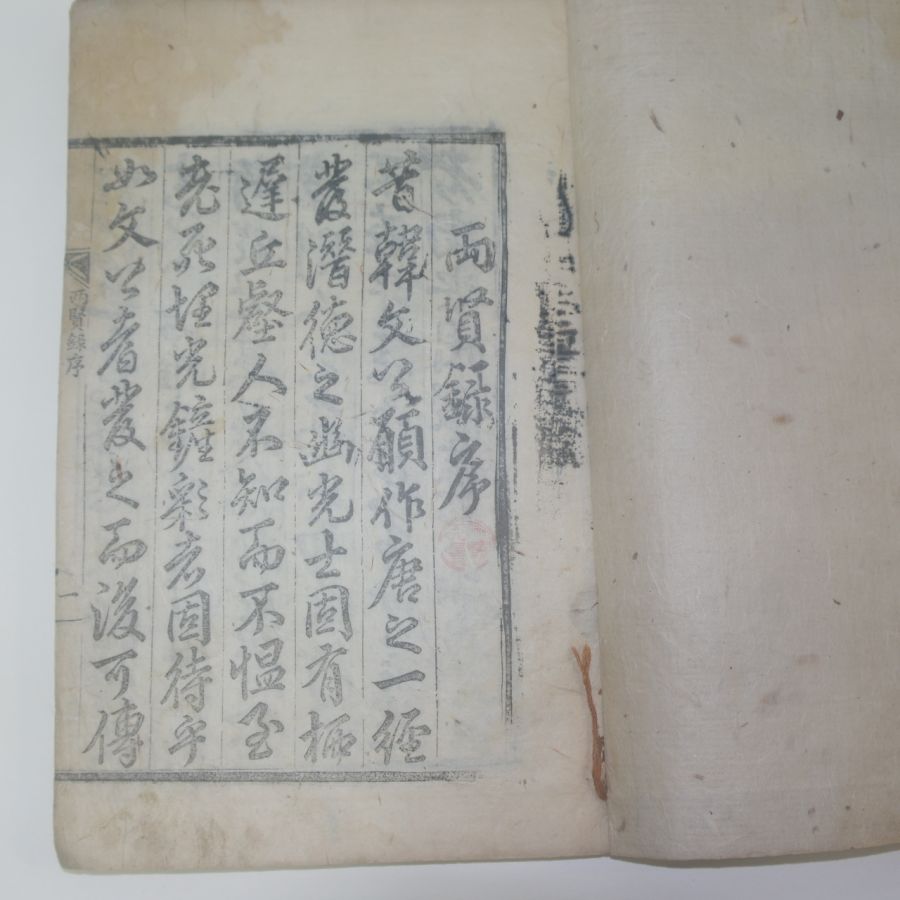 両賢録序
昔韓文公願作唐之一經
發潛德之幽光士固有栖
遲丘壑人不知而不慍至
死埋光鏟彩者固待乎
如文公者發之而後可傳
両賢録序
一